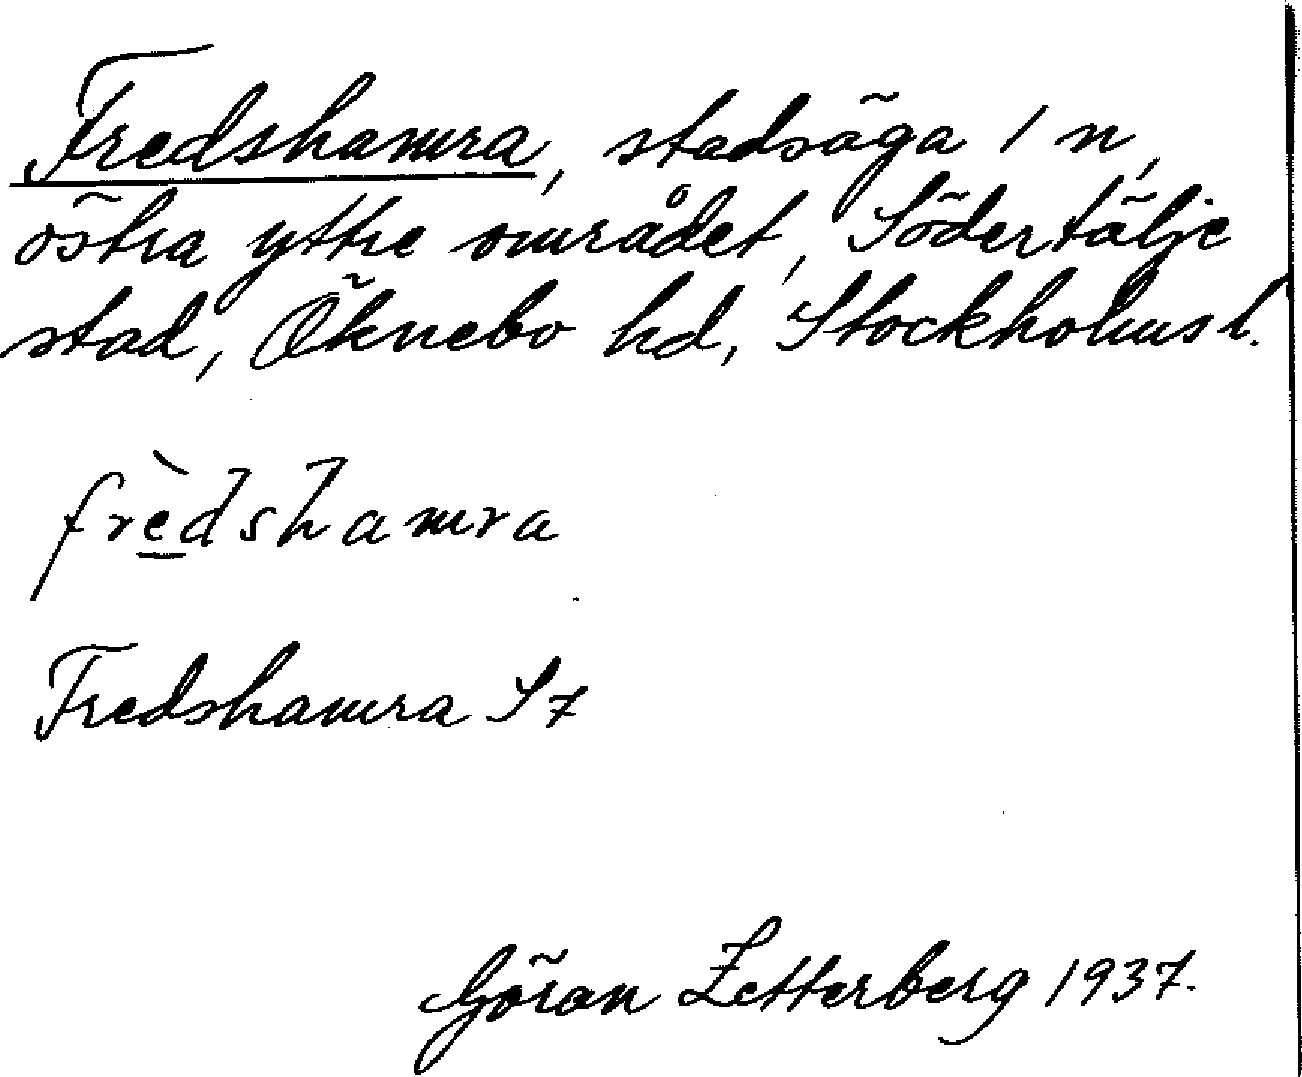 Fredshamra, stadsäga 1 n,
östra yttre området, Södertälje
stad, Öknebo hd, Stockholms l.
frèdshamra
Fredshamra
Göran Zetterberg 1937.